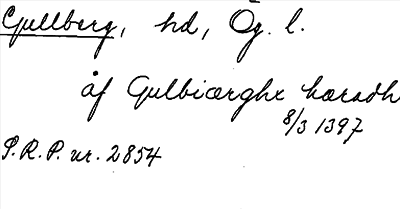 Gullberg, hd, Ög. l.
åf Gulbiærghx hæradh
8/3 1397
S.R.P. nr. 2854